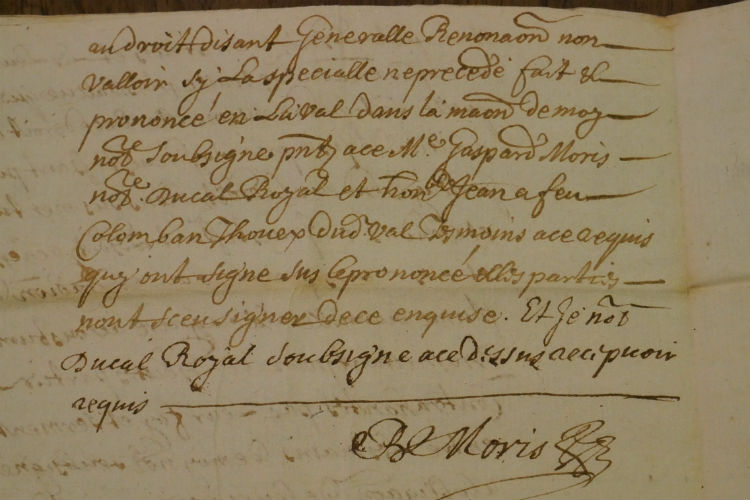 au droit disant Generalle Renonaon non
valloir sy La specialle ne precede fait &
prononcé en Laval dans la maon de moy
not soubsigne pnt ace Me. Gaspard Moris
notre. Ducal Royal et hon Jean a feu
Colomban Thovex dud Val Tesmoins ace requis
quy ont signe sus leprononcé & les parties
nont sceu signer dece enquise. Et Je not
Ducal Royal soubsigne ace dessus recepvoir
requis
B Moris